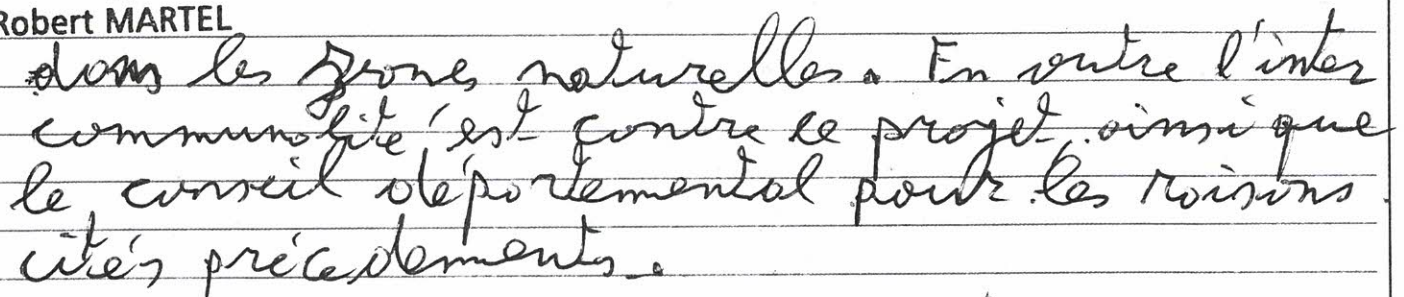 Robert MARTEL
dans les zones naturelles. En outre l'inter
communalité est contre ce projet, ainsi que
le conseil départemental pour les raisons
cités précédements.